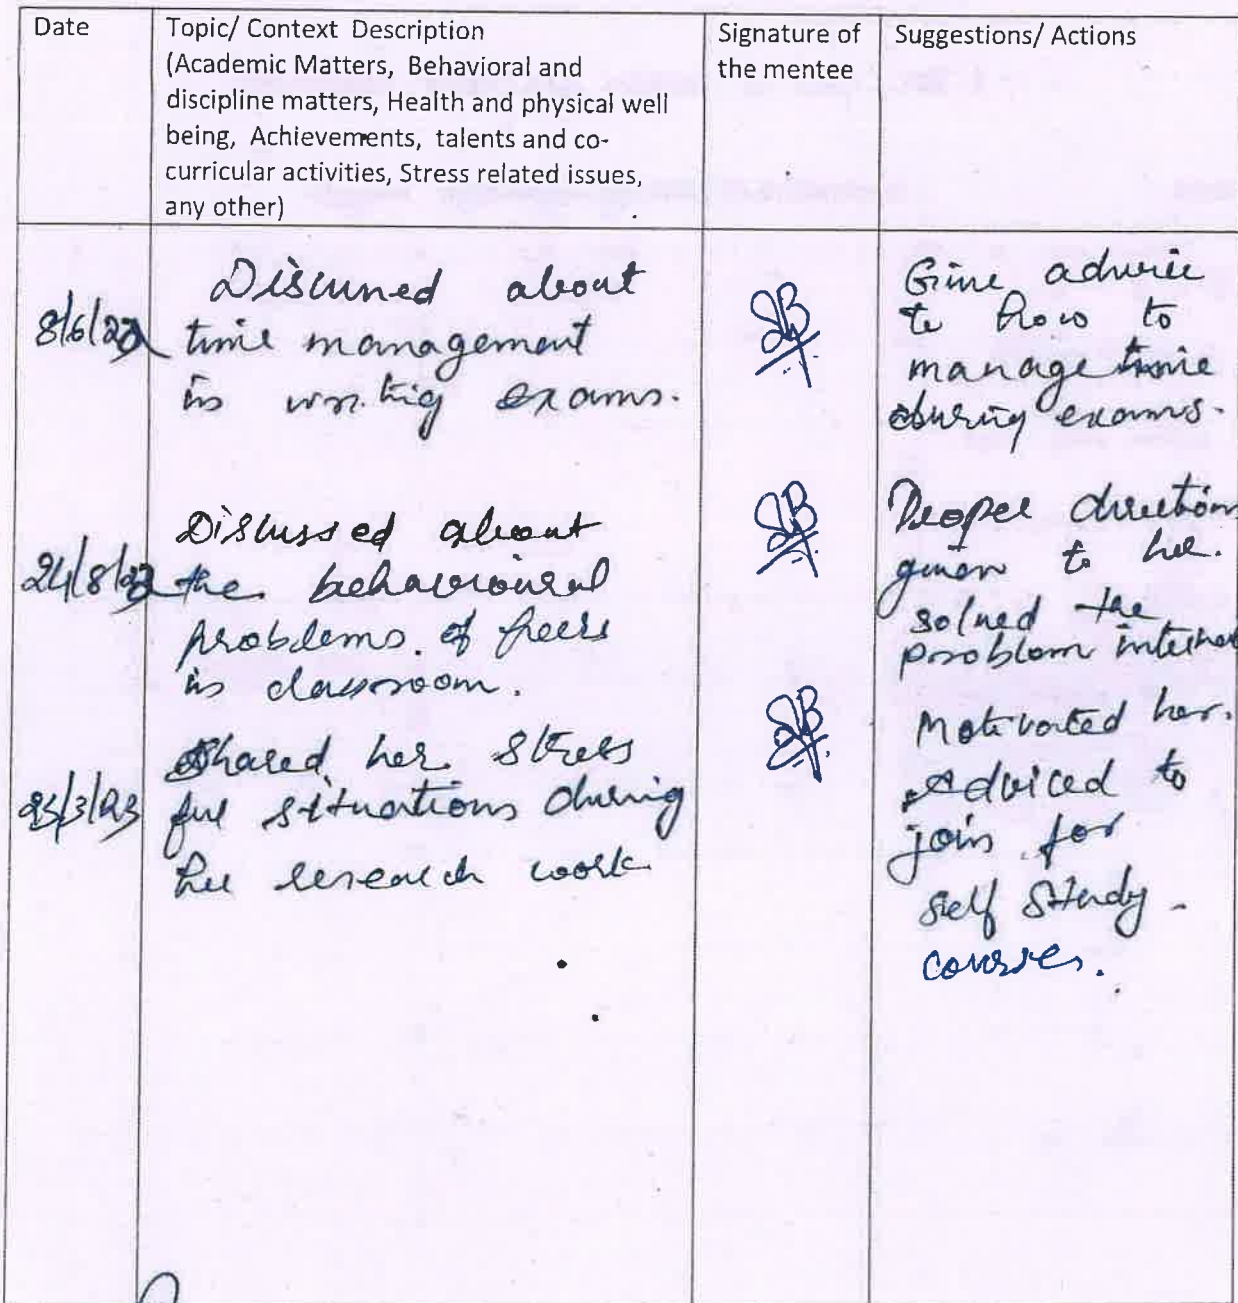 Date
Topic/ Context Description
(Academic Matters, Behavioral and
discipline matters, Health and physical well
being, Achievements, talents and co-
curricular activities, Stress related issues,
any other)
Signature of
the mentee
Suggestions/ Actions
8/6/22
Discussed about
time management
in writing exams.
Give advice
to how to
manage time
during exams.
24/8/22
Discussed about
the behavioural
problems of peers
in classroom.
Proper direction
given to her.
solved the
problem
23/3/23
Shared her stress
ful situations during
her research work
Motivated her.
Adviced to
join for
self study-
courses.